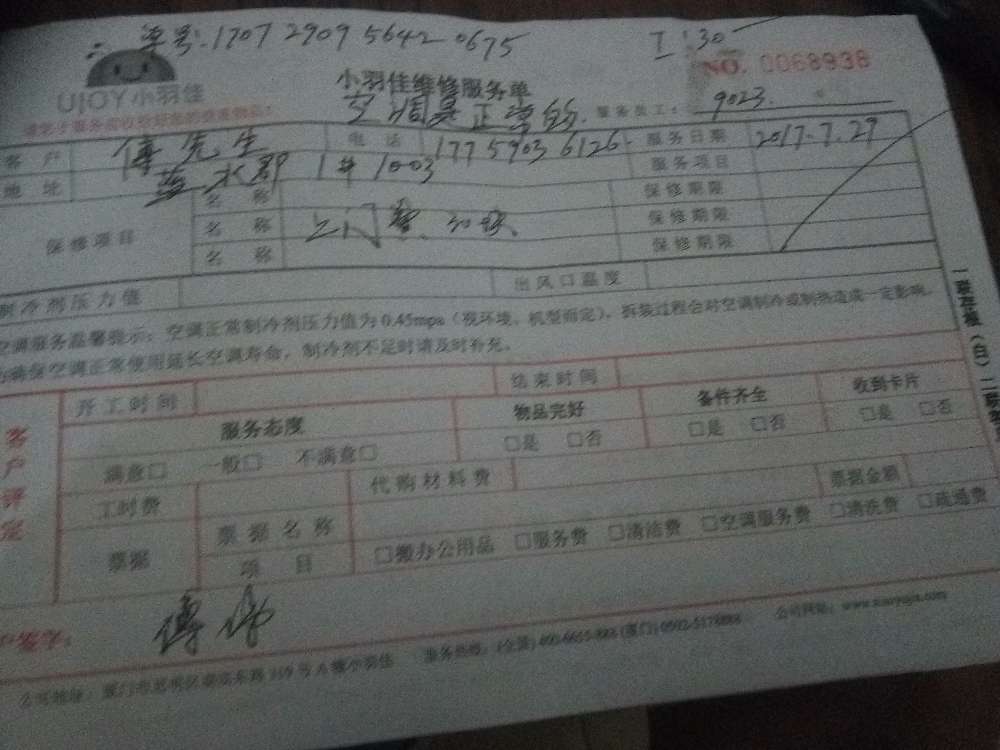 单号:1707 2909 5642 0675
1:30
NO. 0068938
UJOY小羽佳
小羽佳维修服务单
空调是正常的.
服务员工: 9023.
客户 傅先生 电话 177 5903 6126 服务日期 2017.7.27
地址 蓝水郡 1# 1003 服务项目
保修项目 名称 保修期限
名称 上门费 30块 保修期限
名称 保修期限
制冷剂压力值 出风口温度
空调服务温馨提示:空调正常制冷剂压力值为0.45mpa(视环境、机型而定),拆装过程会对空调制冷或制热造成一定影响,
为确保空调正常使用延长空调寿命,制冷剂不足时请及时补充。
客户评定
开工时间 结束时间
服务态度 物品完好 备件齐全 收到卡片
满意□ 一般□ 不满意□ □是 □否 □是 □否 □是 □否
工时费 代购材料费 票据金额
票据 票据名称
项目 □搬办公用品 □服务费 □清洁费 □空调服务费 □清洗费 □疏通费
公司地址:厦门市思明区 319号A栋小羽佳 服务热线:(全国)400-6655-888(厦门)0592-5178888 公司网站:www.xiaoyujia.com